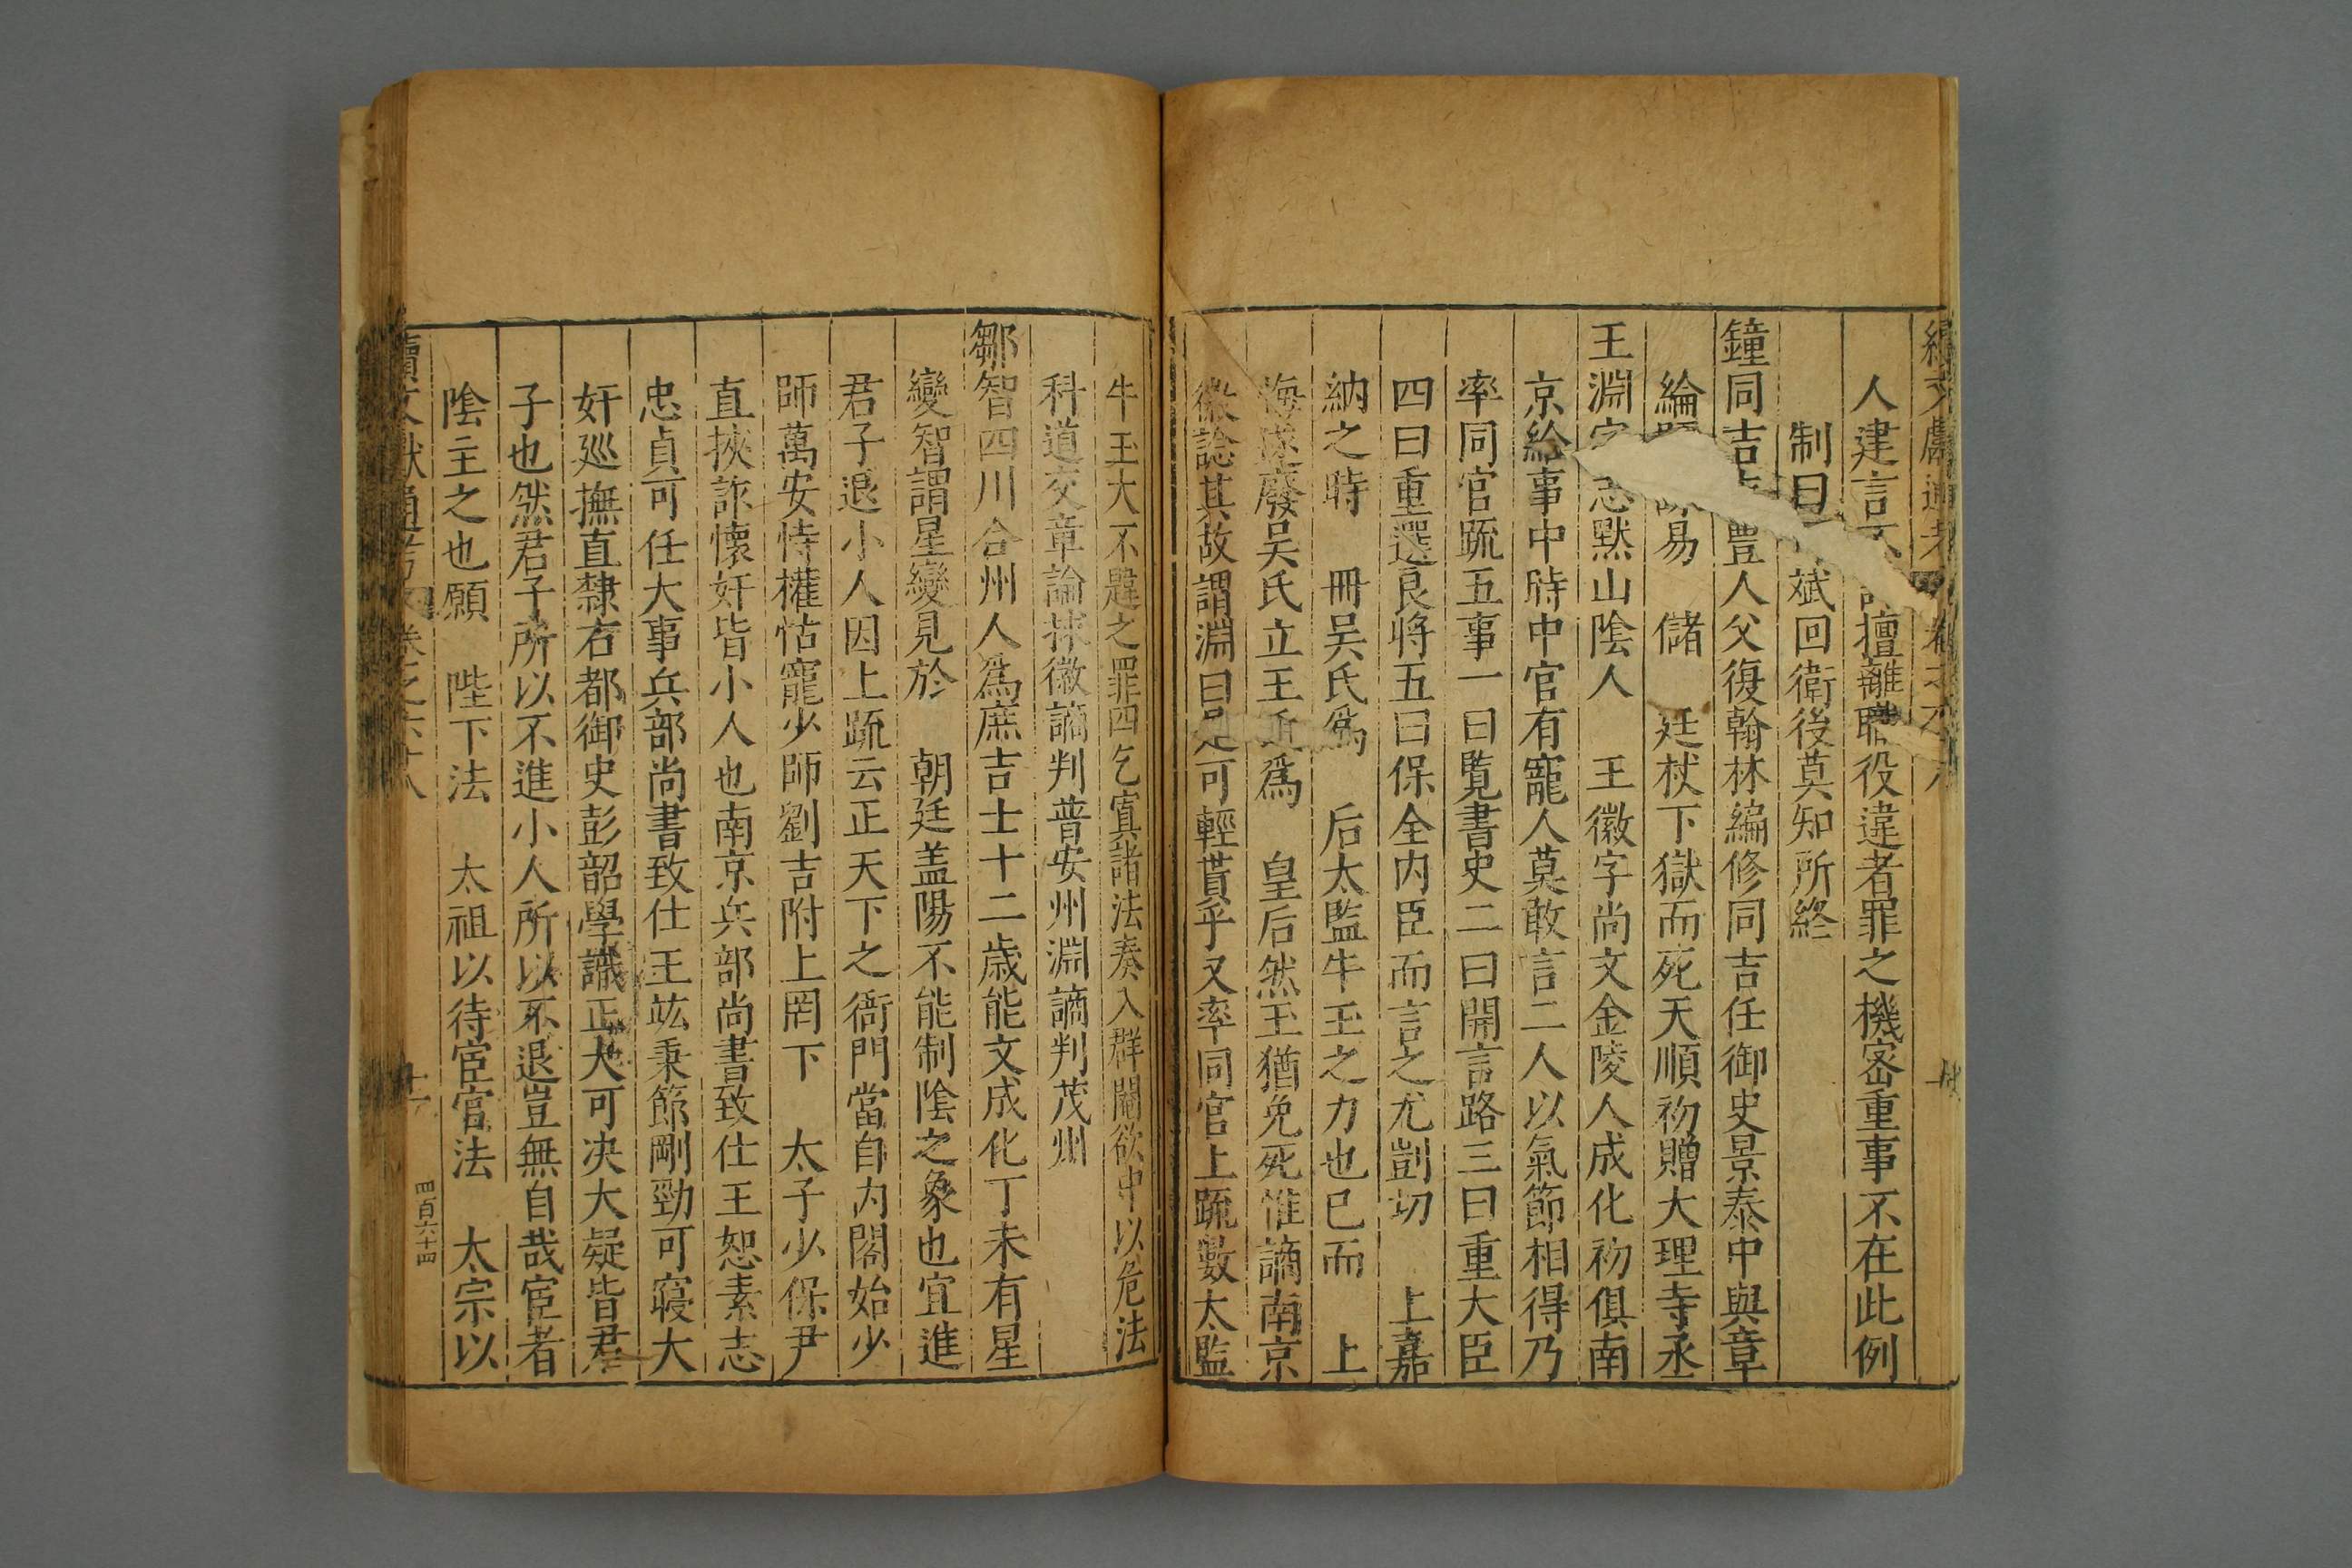 人建言不擅離職役違者罪之機密重事不在此例
制曰斌回衛後莫知所終
鐘同吉豊人父復翰林編修同吉任御史景泰中與章
綸易　儲　廷杖下獄而死天順初贈大理寺丞
王淵字志默山陰人　王徽字尚文金陵人成化初俱南
京給事中時中官有寵人莫敢言二人以氣節相得乃
率同官疏五事一曰覽書史二曰開言路三曰重大臣
四曰重選良將五曰保全内臣而言之尤剴切　上嘉
納之時　冊吳氏為　后太監牛玉之力也已而　上
悔遂廢吳氏立王氏為　皇后然玉猶免死惟謫南京
徽諗其故謂淵曰是可輕貰乎又率同官上疏數太監
牛玉大不韙之罪四乞寘諸法奏入群閹欲中以危法
科道交章論捄徽謫判普安州淵謫判茂州
鄒智四川合州人爲庶吉士十二歳能文成化丁未有星
變智謂星變見於　朝廷盖陽不能制陰之象也宜進
君子退小人因上疏云正天下之衙門當自内閣始少
師萬安恃權怙寵少師劉吉附上罔下　太子少保尹
直挾詐懷奸皆小人也南京兵部尚書致仕王恕素志
忠貞可任大事兵部尚書致仕王竑秉節剛勁可寢大
奸廵撫直隸右都御史彭韶學識正大可决大疑皆君
子也然君子所以不進小人所以不退豈無自哉宦者
陰主之也願　陛下法　太祖以待宦官法　太宗以
續文獻通考　卷之六十八　十一　四百六十四